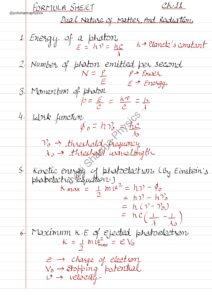 FORMULA SHEET
Ch-11
Dual Nature of Matter And Radiation
1. Energy of a photon
E = hν = hc/λ
h → Planck's constant
2. Number of photon emitted per second
N = P/E
P → Power
E → Energy
3. Momentum of photon
p = E/C = hν/C = h/λ
4. Work function
ϕ₀ = hν₀ = hc/λ₀
ν₀ → threshold frequency
λ₀ → threshold wavelength
5. Kinetic energy of photoelectron (by Einstein's
photoelectric Equation)
Kmax = 1/2 mv² = hν - ϕ₀
= hν - hν₀
= h(ν - ν₀)
= hc(1/λ - 1/λ₀)
6. Maximum K.E of ejected photoelectron
K = 1/2 mv²max = eV₀
e → charge of electron
V₀ → stopping potential
v → velocity
Physics